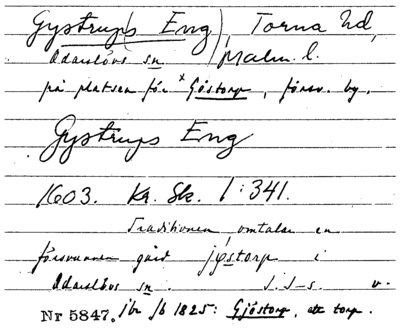 Gystrups Eng), Torna hd,
Odarslövs sn Malm. l.
på platsen för × Göstorp, försv. by.
Gystrups Eng
1603. Kr. Sk. 1:341.
Traditionen omtalar en
försvunnen gård jöstorp i
Odarslövs sn. J. S-s. v.
Nr 5847. jbr jb 1825: Gjöstorp, ett torp.